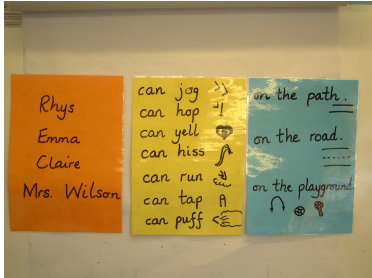 Rhys
Emma
Claire
Mrs. Wilson
can jog
can hop
can yell
can hiss
can run
can tap
can puff
on the path.
on the road.
on the playground.